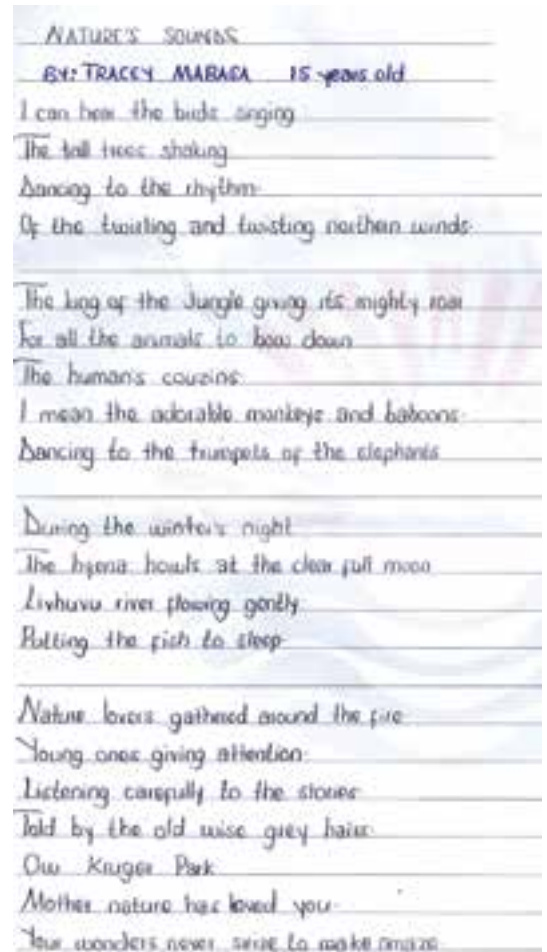 NATURE'S SOUNDS
BY: TRACEY MABASA 15 years old
I can hear the birds singing
The tall trees shaking
Dancing to the rhythm
Of the twirling and twisting northern winds
The king of the Jungle giving its mighty roar
For all the animals to bow down
The human's cousins
I mean the adorable monkeys and baboons
Dancing to the trumpets of the elephants
During the winter's night
The hyena howls at the clear full moon
Livhuvu river flowing gently
Putting the fish to sleep
Nature lovers gathered around the fire
Young ones giving attention
Listening carefully to the stories
Told by the old wise grey hairs
Our Kruger Park
Mother nature has loved you
Your wonders never to make amaze